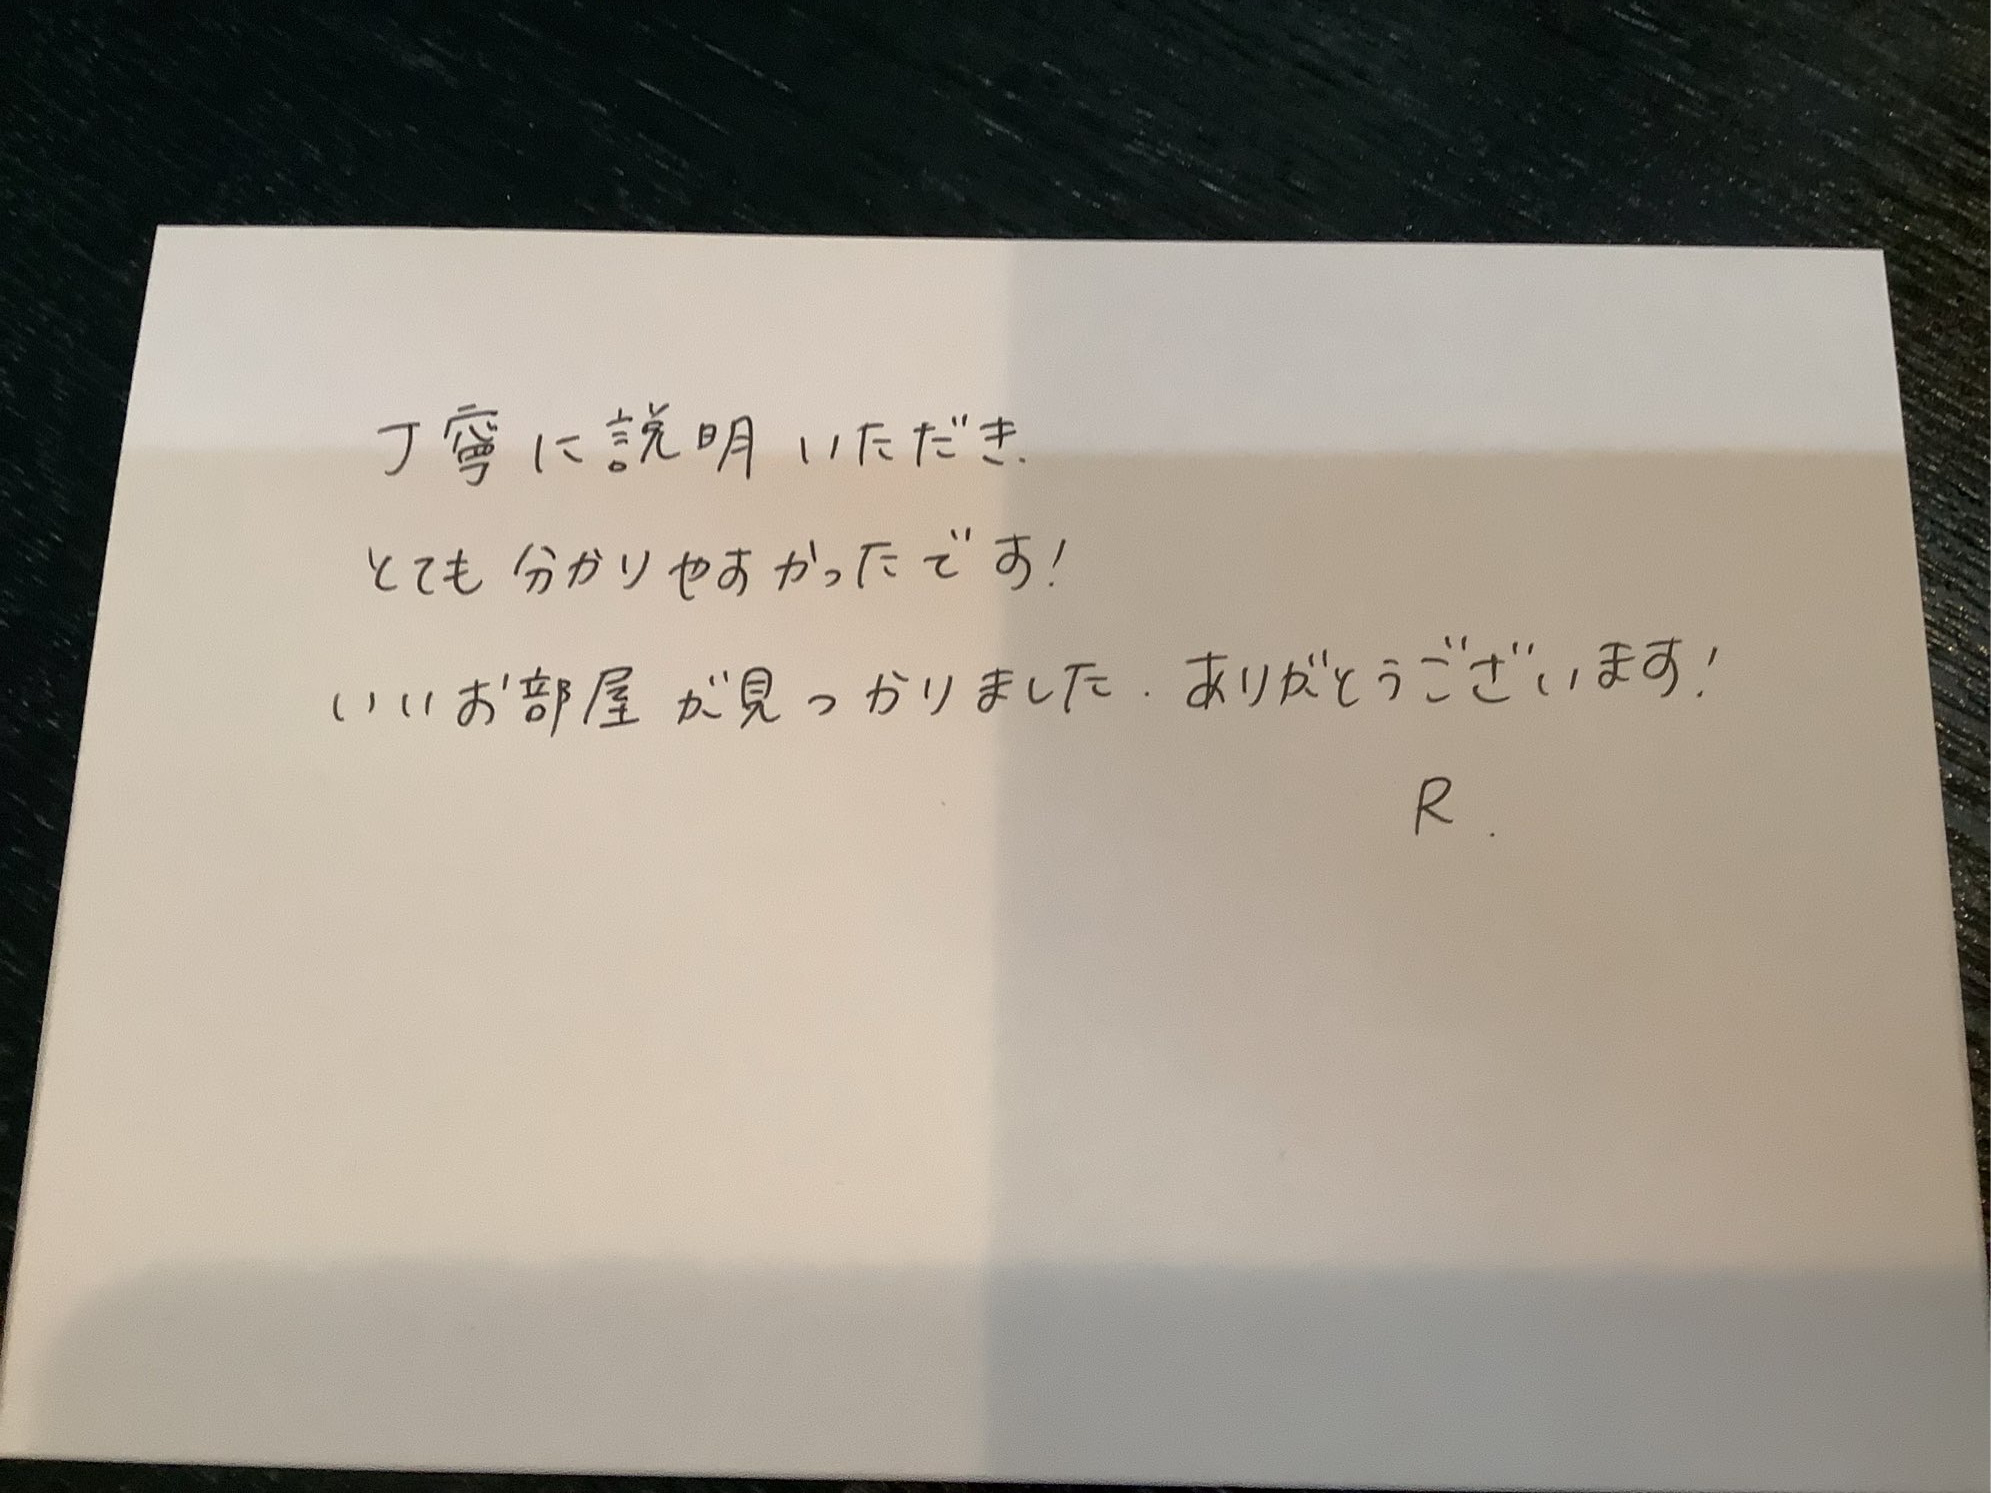 丁寧に説明いただき.
とても分かりやすかったです！
いいお部屋が見つかりました. ありがとうございます！
R.